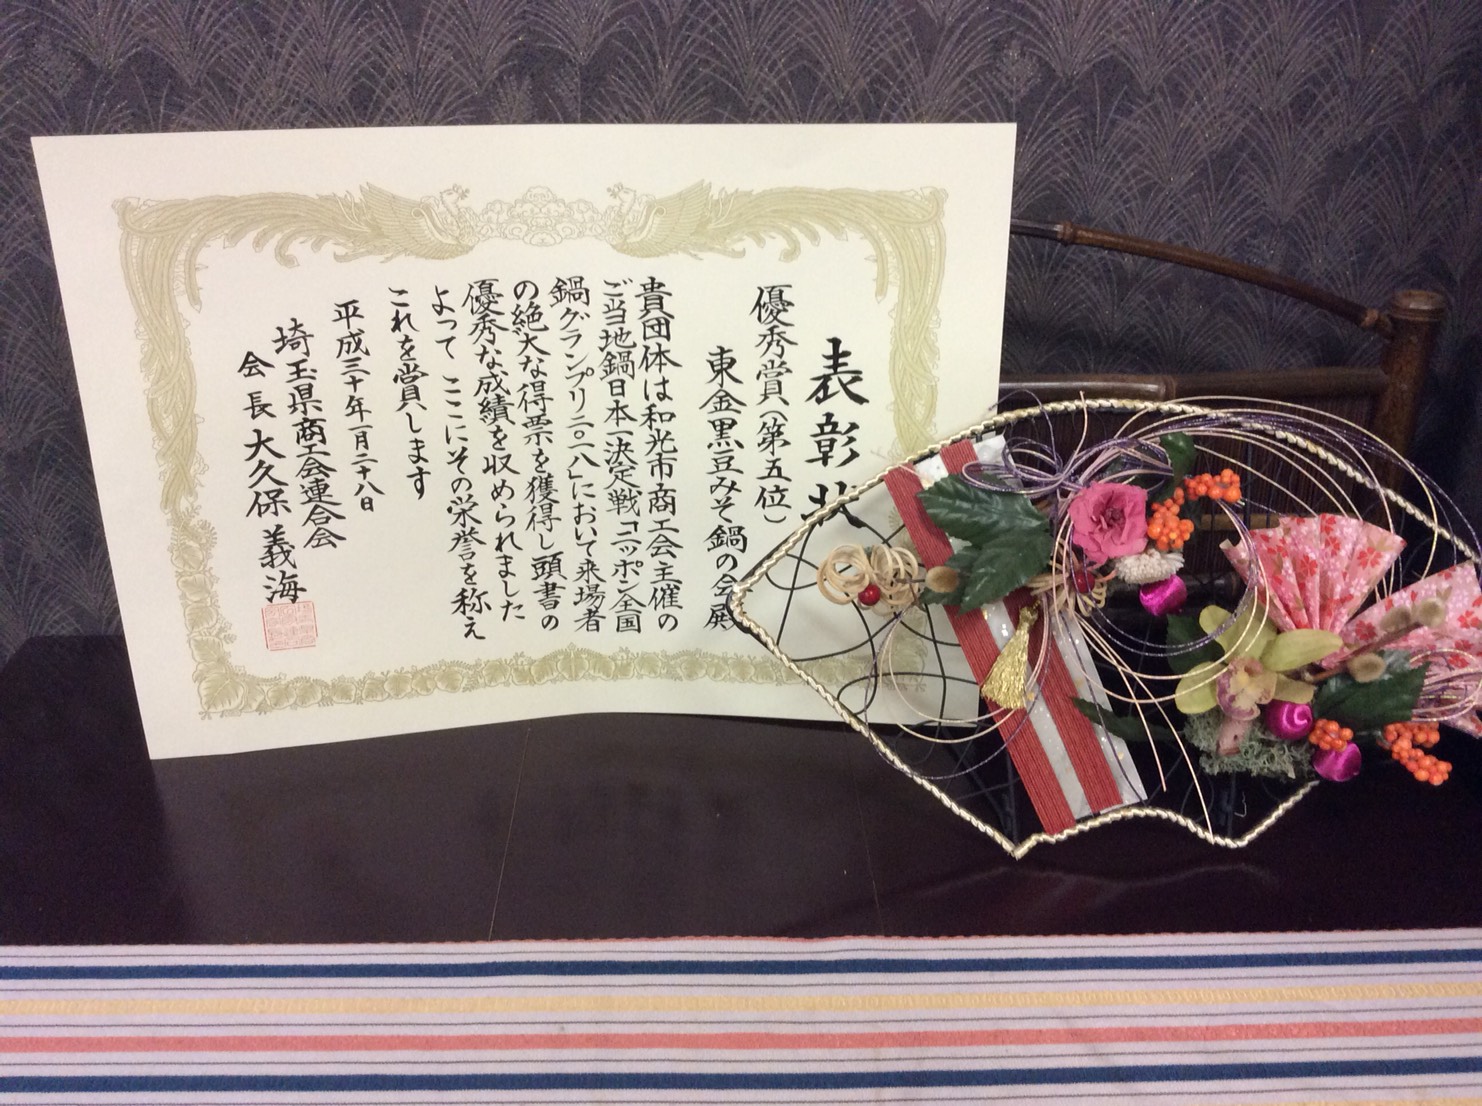 表彰状
優秀賞（第五位）
東金黒豆みそ鍋の会殿
貴団体は和光市商工会主催の
ご当地鍋日本一決定戦「ニッポン全国
鍋グランプリ二〇一八」において来場者
の絶大な得票を獲得し頭書の
優秀な成績を収められました
よって ここにその栄誉を称え
これを賞します
平成三十年一月二十八日
埼玉県商工会連合会
会長 大久保義海